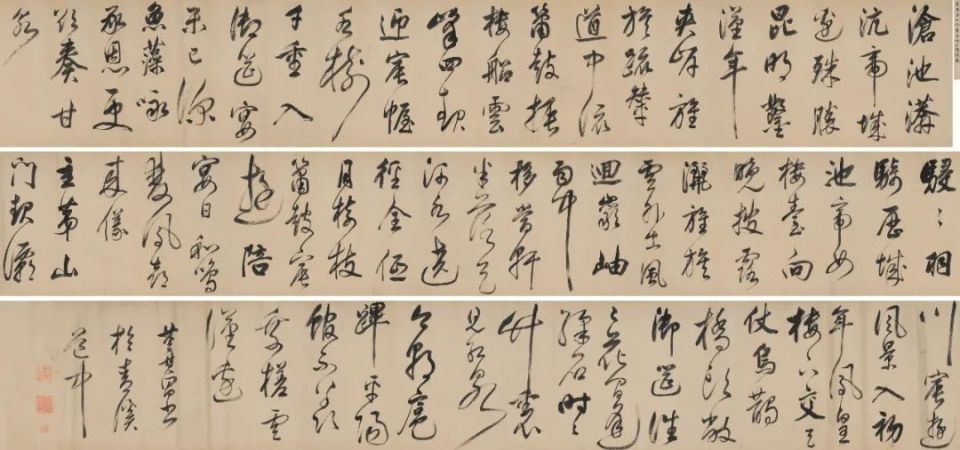 滄池漭
沆帝城
邊殊勝
昆明鑿
漢年
夾岸旌
旗疏輦
道中流
簫鼓振
樓船雲
峰四起
迎宸幄
水樹
千重入
御筵宴
樂已深
魚藻詠
承恩更
欲奏甘
泉
駸〻羽
騎歷城
池帝女
樓臺向
晚披霧
灑旌旗
雲外出風
迴巖岫
雨中
移當軒
半落天
河水遶
徑全低
月樹枝
簫鼓宸
遊陪
宴日和鳴
雙鳳喜
來儀
主第山
門起灞
川宸遊
風景入初
年鳳皇
樓下交天
仗烏鵲
橋頭敞
御筵往
〻花間逢
綵石時〻
竹裏
見紅泉
今朝扈
蹕平陽
館不羨
乘槎雲
漢邊
董其昌書
於青溪
道中